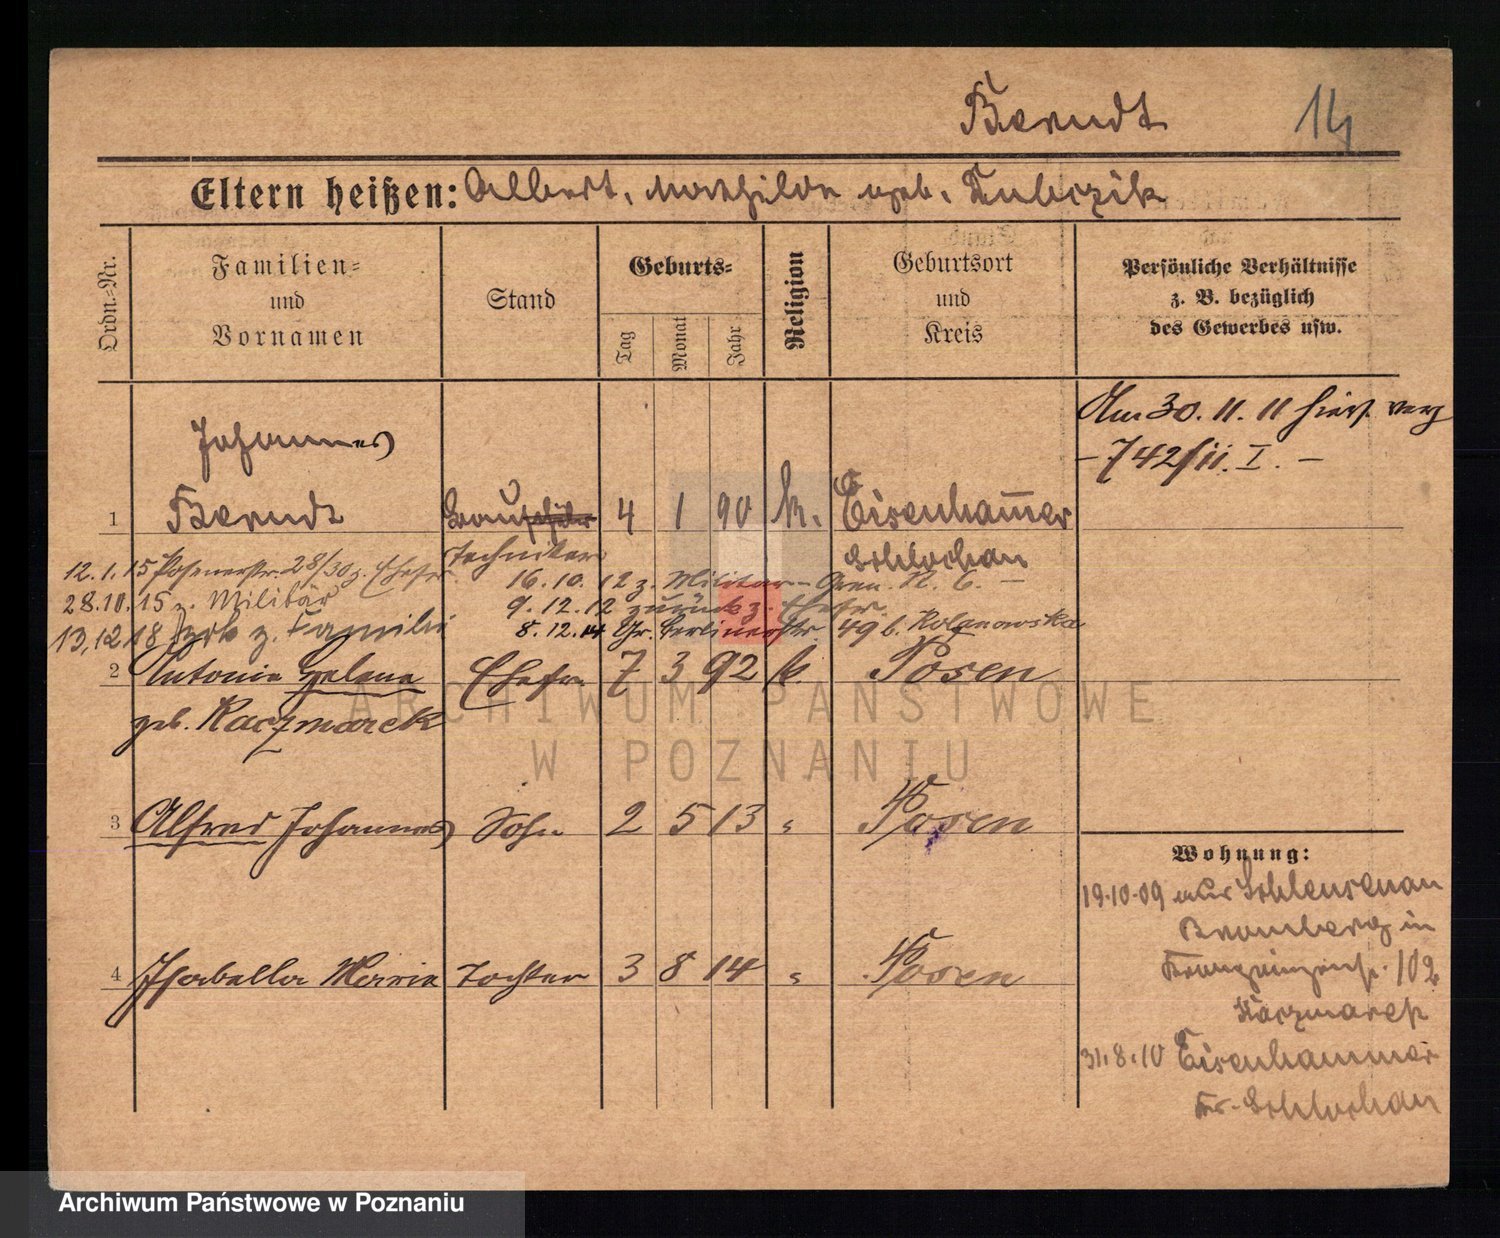 Berndt 14
Eltern heißen: Albert, Mathilde geb. Kubczik
Ordn.-Nr.
Familien-
und
Vornamen
Stand
Geburts-
Tag
Monat
Jahr
Religion
Geburtsort
und
Kreis
Persönliche Verhältnisse
z. B. bezüglich
des Gewerbes usw.
Am 30.11.11 hier
- 742/11. I. -
Johannes
1 Berndt 4 1 90 k. Eisenhammer
Techniker Schlochau
12.1.15 Posenerstr. 28/30 z. Ehefr.
16.10.12 z. Militär - Gren. R. 6. -
28.10.15 z. Militär
9.12.12 zurück z. Ehefr.
13.12.18 zrk z. Familie
8.12.14 Gr. Berlinerstr. 49 b. Kolanowska
2 Antonie Helene Ehefr. 7 3 92 k. Posen
geb. Kaczmarek
3 Alfred Johannes Sohn 2 5 13 " Posen
Wohnung:
19.10.09 aus Schleusenau
Bromberg in
102
Kaczmarek
4 Isabella Maria Tochter 3 8 14 " Posen
31.8.10 Eisenhammer
Kr. Schlochau
ARCHIWUM PAŃSTWOWE
W POZNANIU
Archiwum Państwowe w Poznaniu